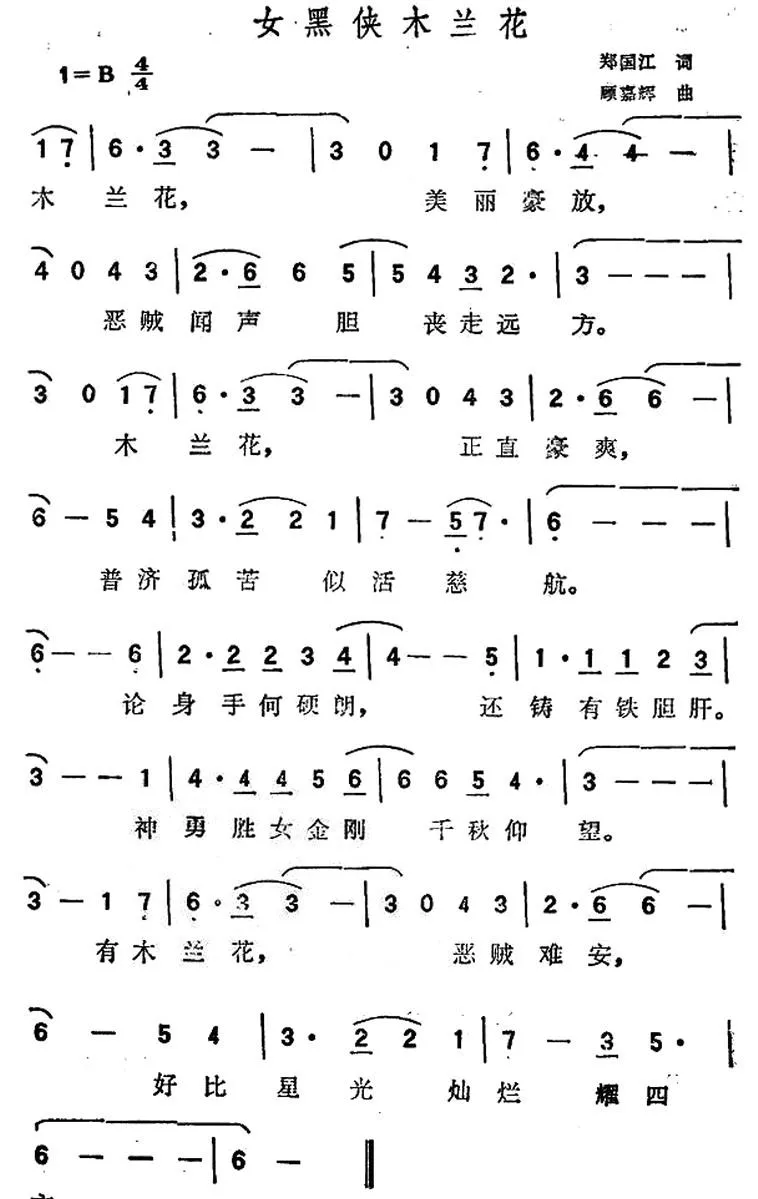 女黑侠木兰花
1=B 4/4
郑国江 词
顾嘉辉 曲
1 7 | 6 · 3 3 — | 3 0 1 7 | 6 · 4 4 — |
木 兰 花， 美 丽 豪 放，
4 0 4 3 | 2 · 6 6 5 | 5 4 3 2 · | 3 — — — |
恶 贼 闻 声 胆 丧 走 远 方。
3 0 1 7 | 6 · 3 3 — | 3 0 4 3 | 2 · 6 6 — |
木 兰 花， 正 直 豪 爽，
6 — 5 4 | 3 · 2 2 1 | 7 — 5 7 · | 6 — — — |
普 济 孤 苦 似 活 慈 航。
6 — — 6 | 2 · 2 2 3 4 | 4 — — 5 | 1 · 1 1 2 3 |
论 身 手 何 硕 朗， 还 铸 有 铁 胆 肝。
3 — — 1 | 4 · 4 4 5 6 | 6 6 5 4 · | 3 — — — |
神 勇 胜 女 金 刚 千 秋 仰 望。
3 — 1 7 | 6 · 3 3 — | 3 0 4 3 | 2 · 6 6 — |
有 木 兰 花， 恶 贼 难 安，
6 — 5 4 | 3 · 2 2 1 | 7 — 3 5 · |
好 比 星 光 灿 烂 耀 四
6 — — — | 6 — ‖